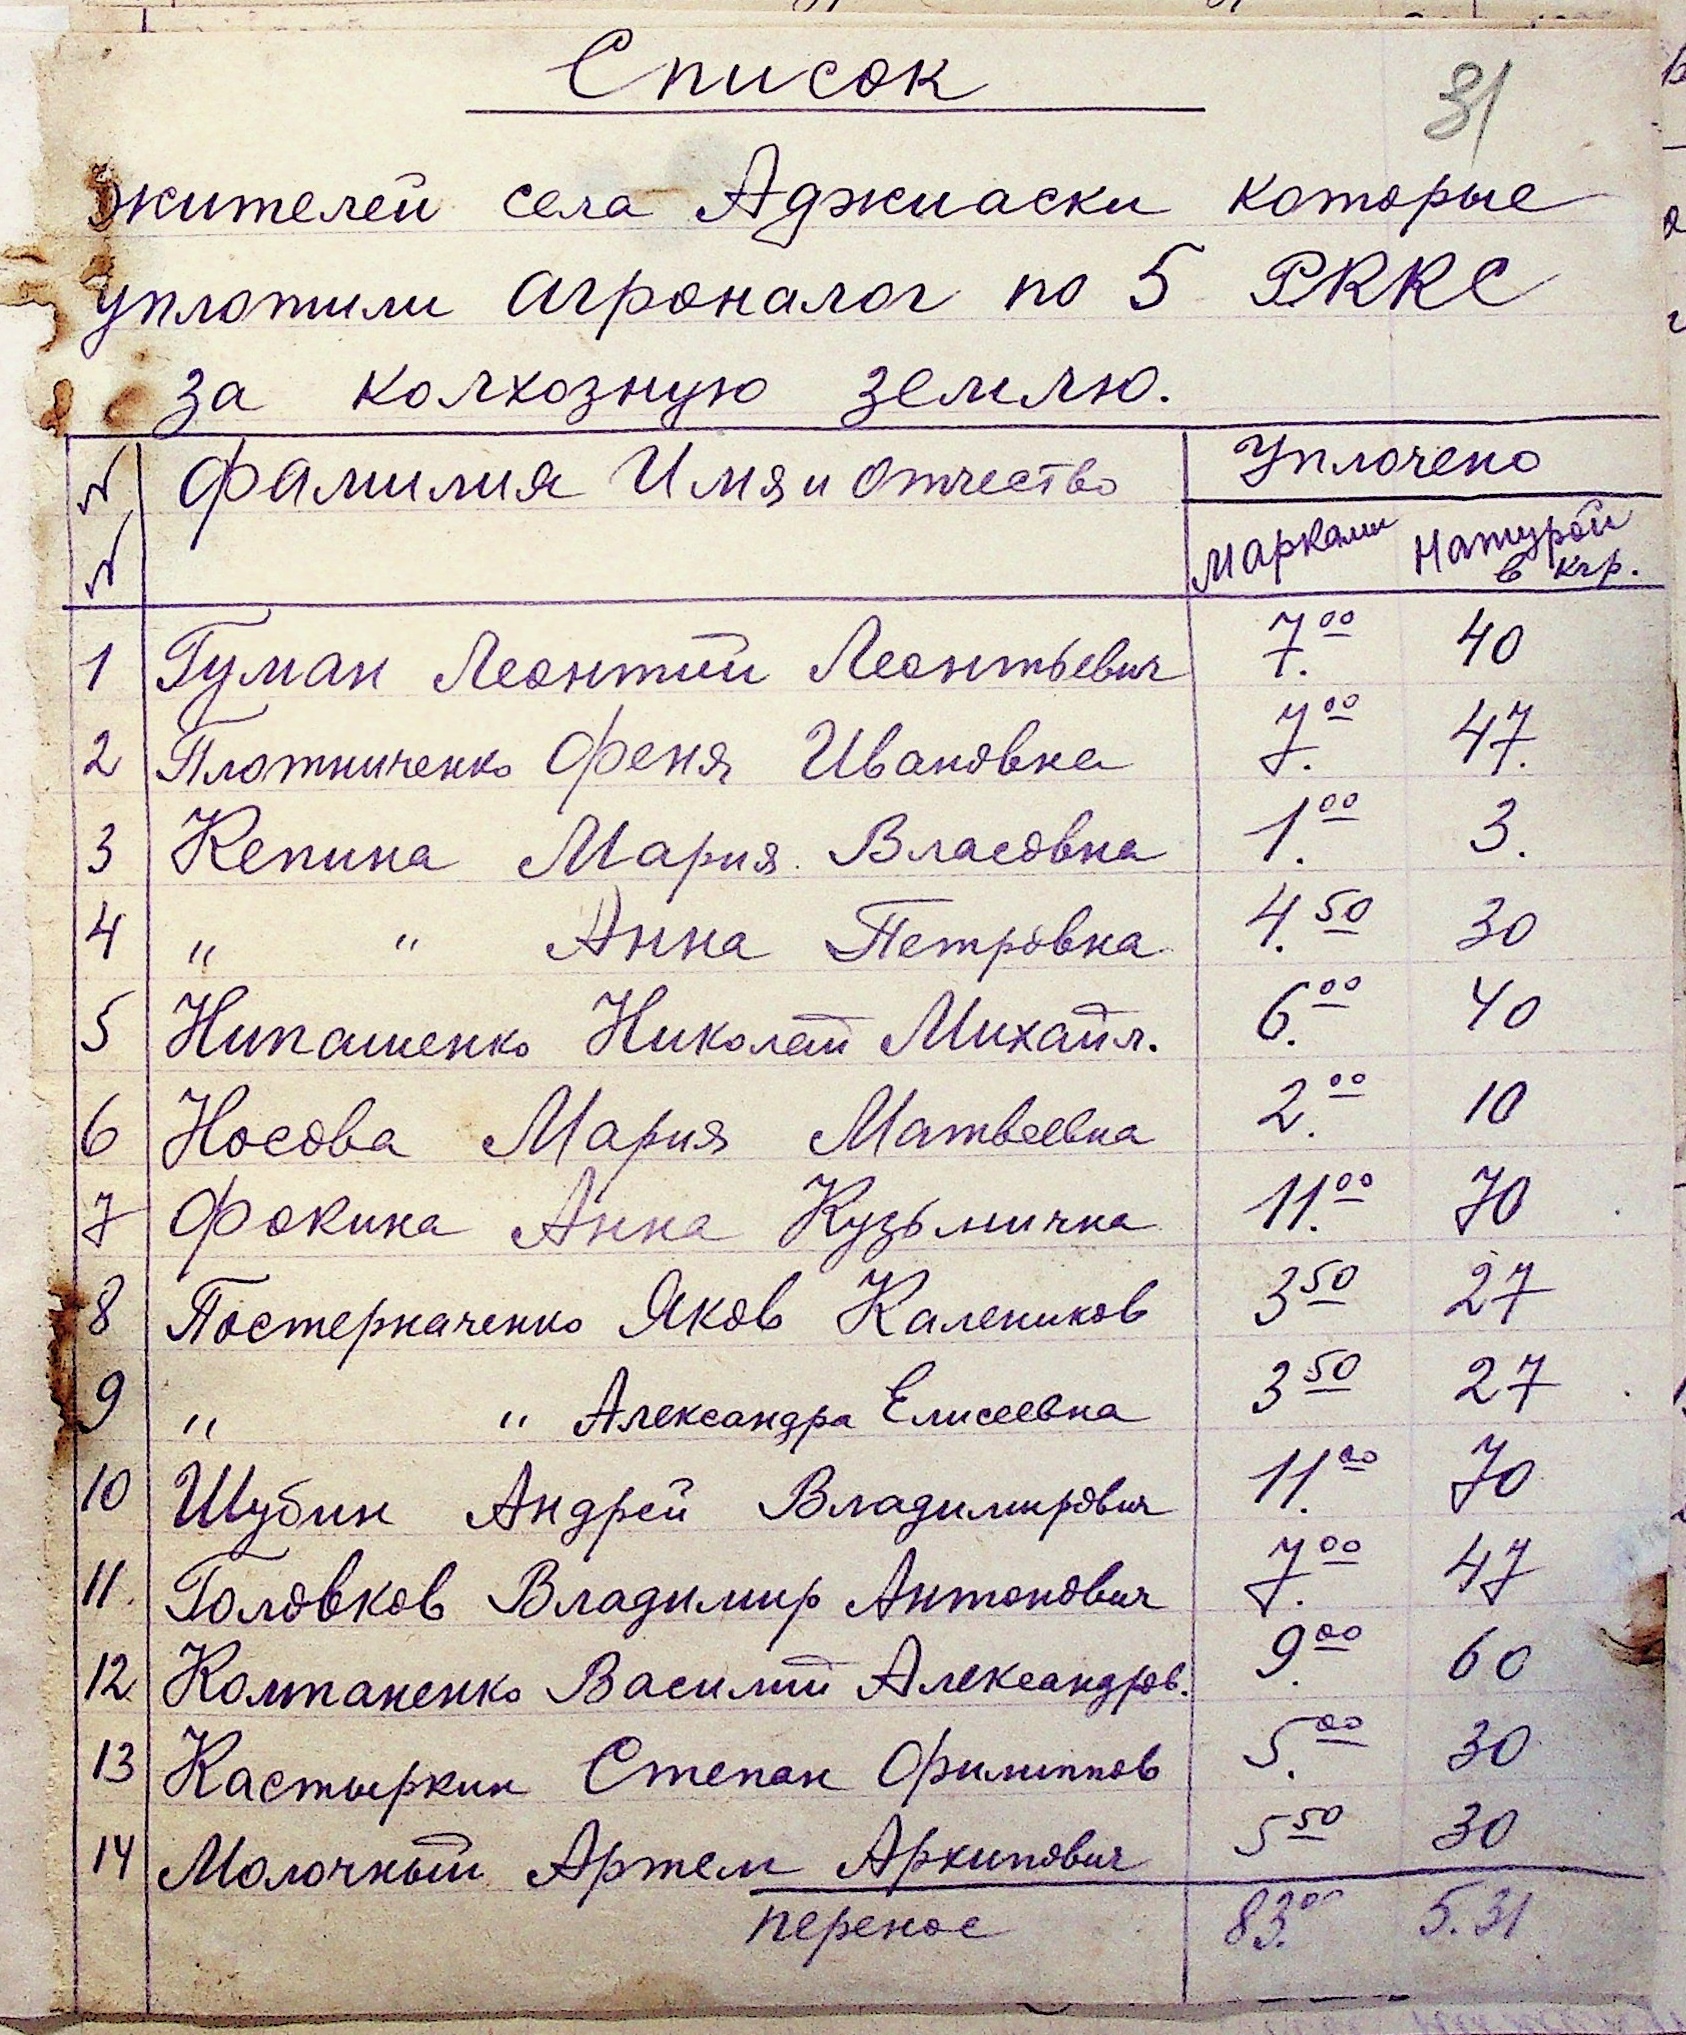 Список
31
жителей села Аджиаски которые
уплотили агроналог по 5 РККС
за колхозную землю.
N N Фамилия Имя и Отчество Уплочено
Марками Натурой в кгр.
1 Гуман Леонтий Леонтьевич 7.00 40
2 Плотниченко Феня Ивановна 7.00 47.
3 Кепина Мария Власовна 1.00 3.
4 " " Анна Петровна 4.50 30
5 Нипашенко Николай Михайл. 6.00 40
6 Носова Мария Матвеевна 2.00 10
7 Фокина Анна Кузьмична 11.00 70
8 Постерначенко Яков Калеников 3 50 27
9 " " Александра Елисеевна 3 50 27
10 Шубин Андрей Владимирович 11.00 70
11. Головков Владимир Антонович 7.00 47
12 Колпаненко Василий Александров. 9.00 60
13 Кастыркин Степан Филиппов 5.00 30
14 Молочный Артем Архипович 5 50 30
перенос 83.00 5.31